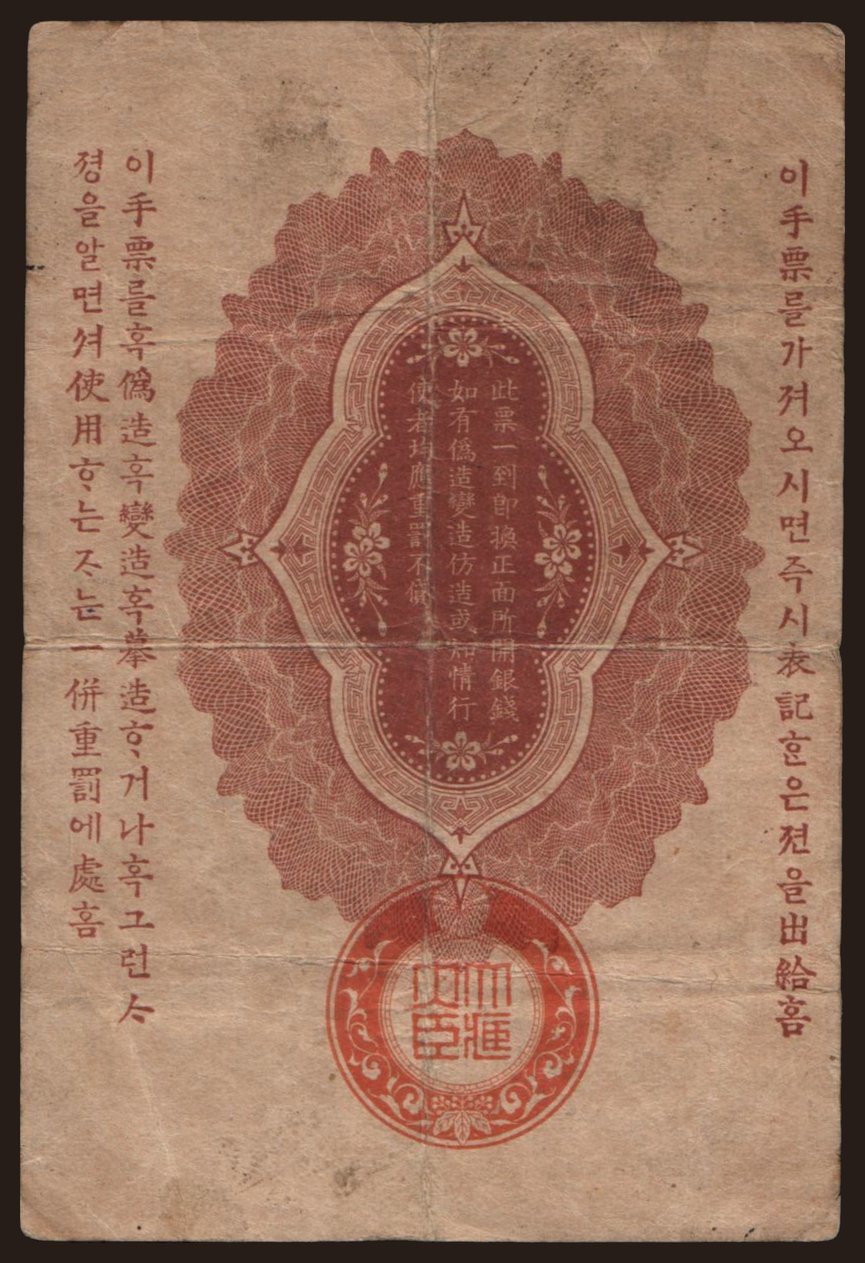 이手票를가져오시면즉시表記ᄒᆞᆫ은젼을出給홈
此票一到即換正面所開銀錢
如有僞造變造仿造或知情行
使者均應重罰不貸
이手票를혹僞造혹變造혹摹造ᄒᆞ거나혹그런ᄉᆞ
졍을알면셔使用ᄒᆞ는ᄌᆞ는一併重罰에處홈
大臣